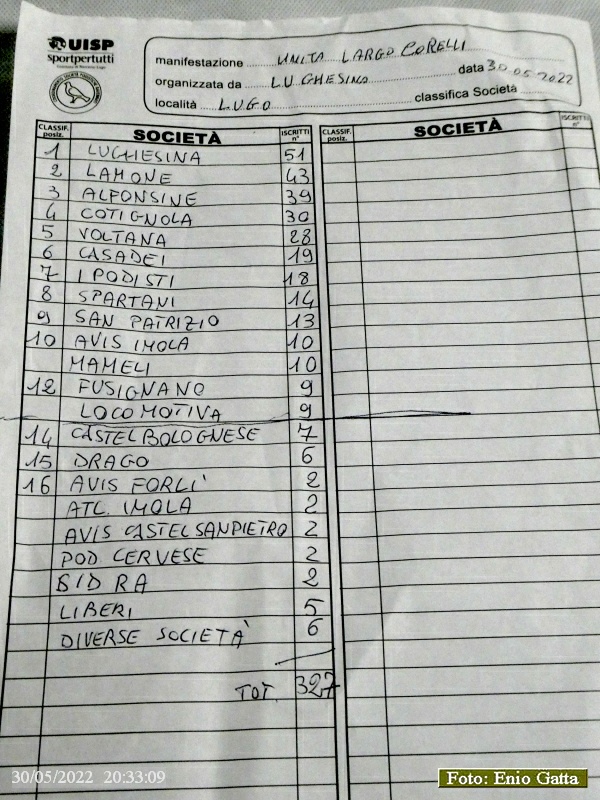 UISP
sportpertutti
manifestazione UNITA LARGO CORELLI
organizzata da LUGHESINA data 30 05 2022
località LUGO classifica Società
CLASSIF. posiz. SOCIETÀ ISCRITTI n° CLASSIF. posiz. SOCIETÀ ISCRITTI n°
1 LUGHESINA 51
2 LAMONE 43
3 ALFONSINE 39
4 COTIGNOLA 30
5 VOLTANA 28
6 CASADEI 19
7 I PODISTI 18
8 SPARTANI 14
9 SAN PATRIZIO 13
10 AVIS IMOLA 10
MAMELI 10
12 FUSIGNANO 9
LOCOMOTIVA 9
14 CASTELBOLOGNESE 7
15 DRAGO 6
16 AVIS FORLI' 2
ATL. IMOLA 2
AVIS CASTELSANPIETRO 2
POD CERVESE 2
SIDRA 2
LIBERI 5
DIVERSE SOCIETÀ 6
TOT. 327
30/05/2022 20:33:09
Foto: Enio Gatta